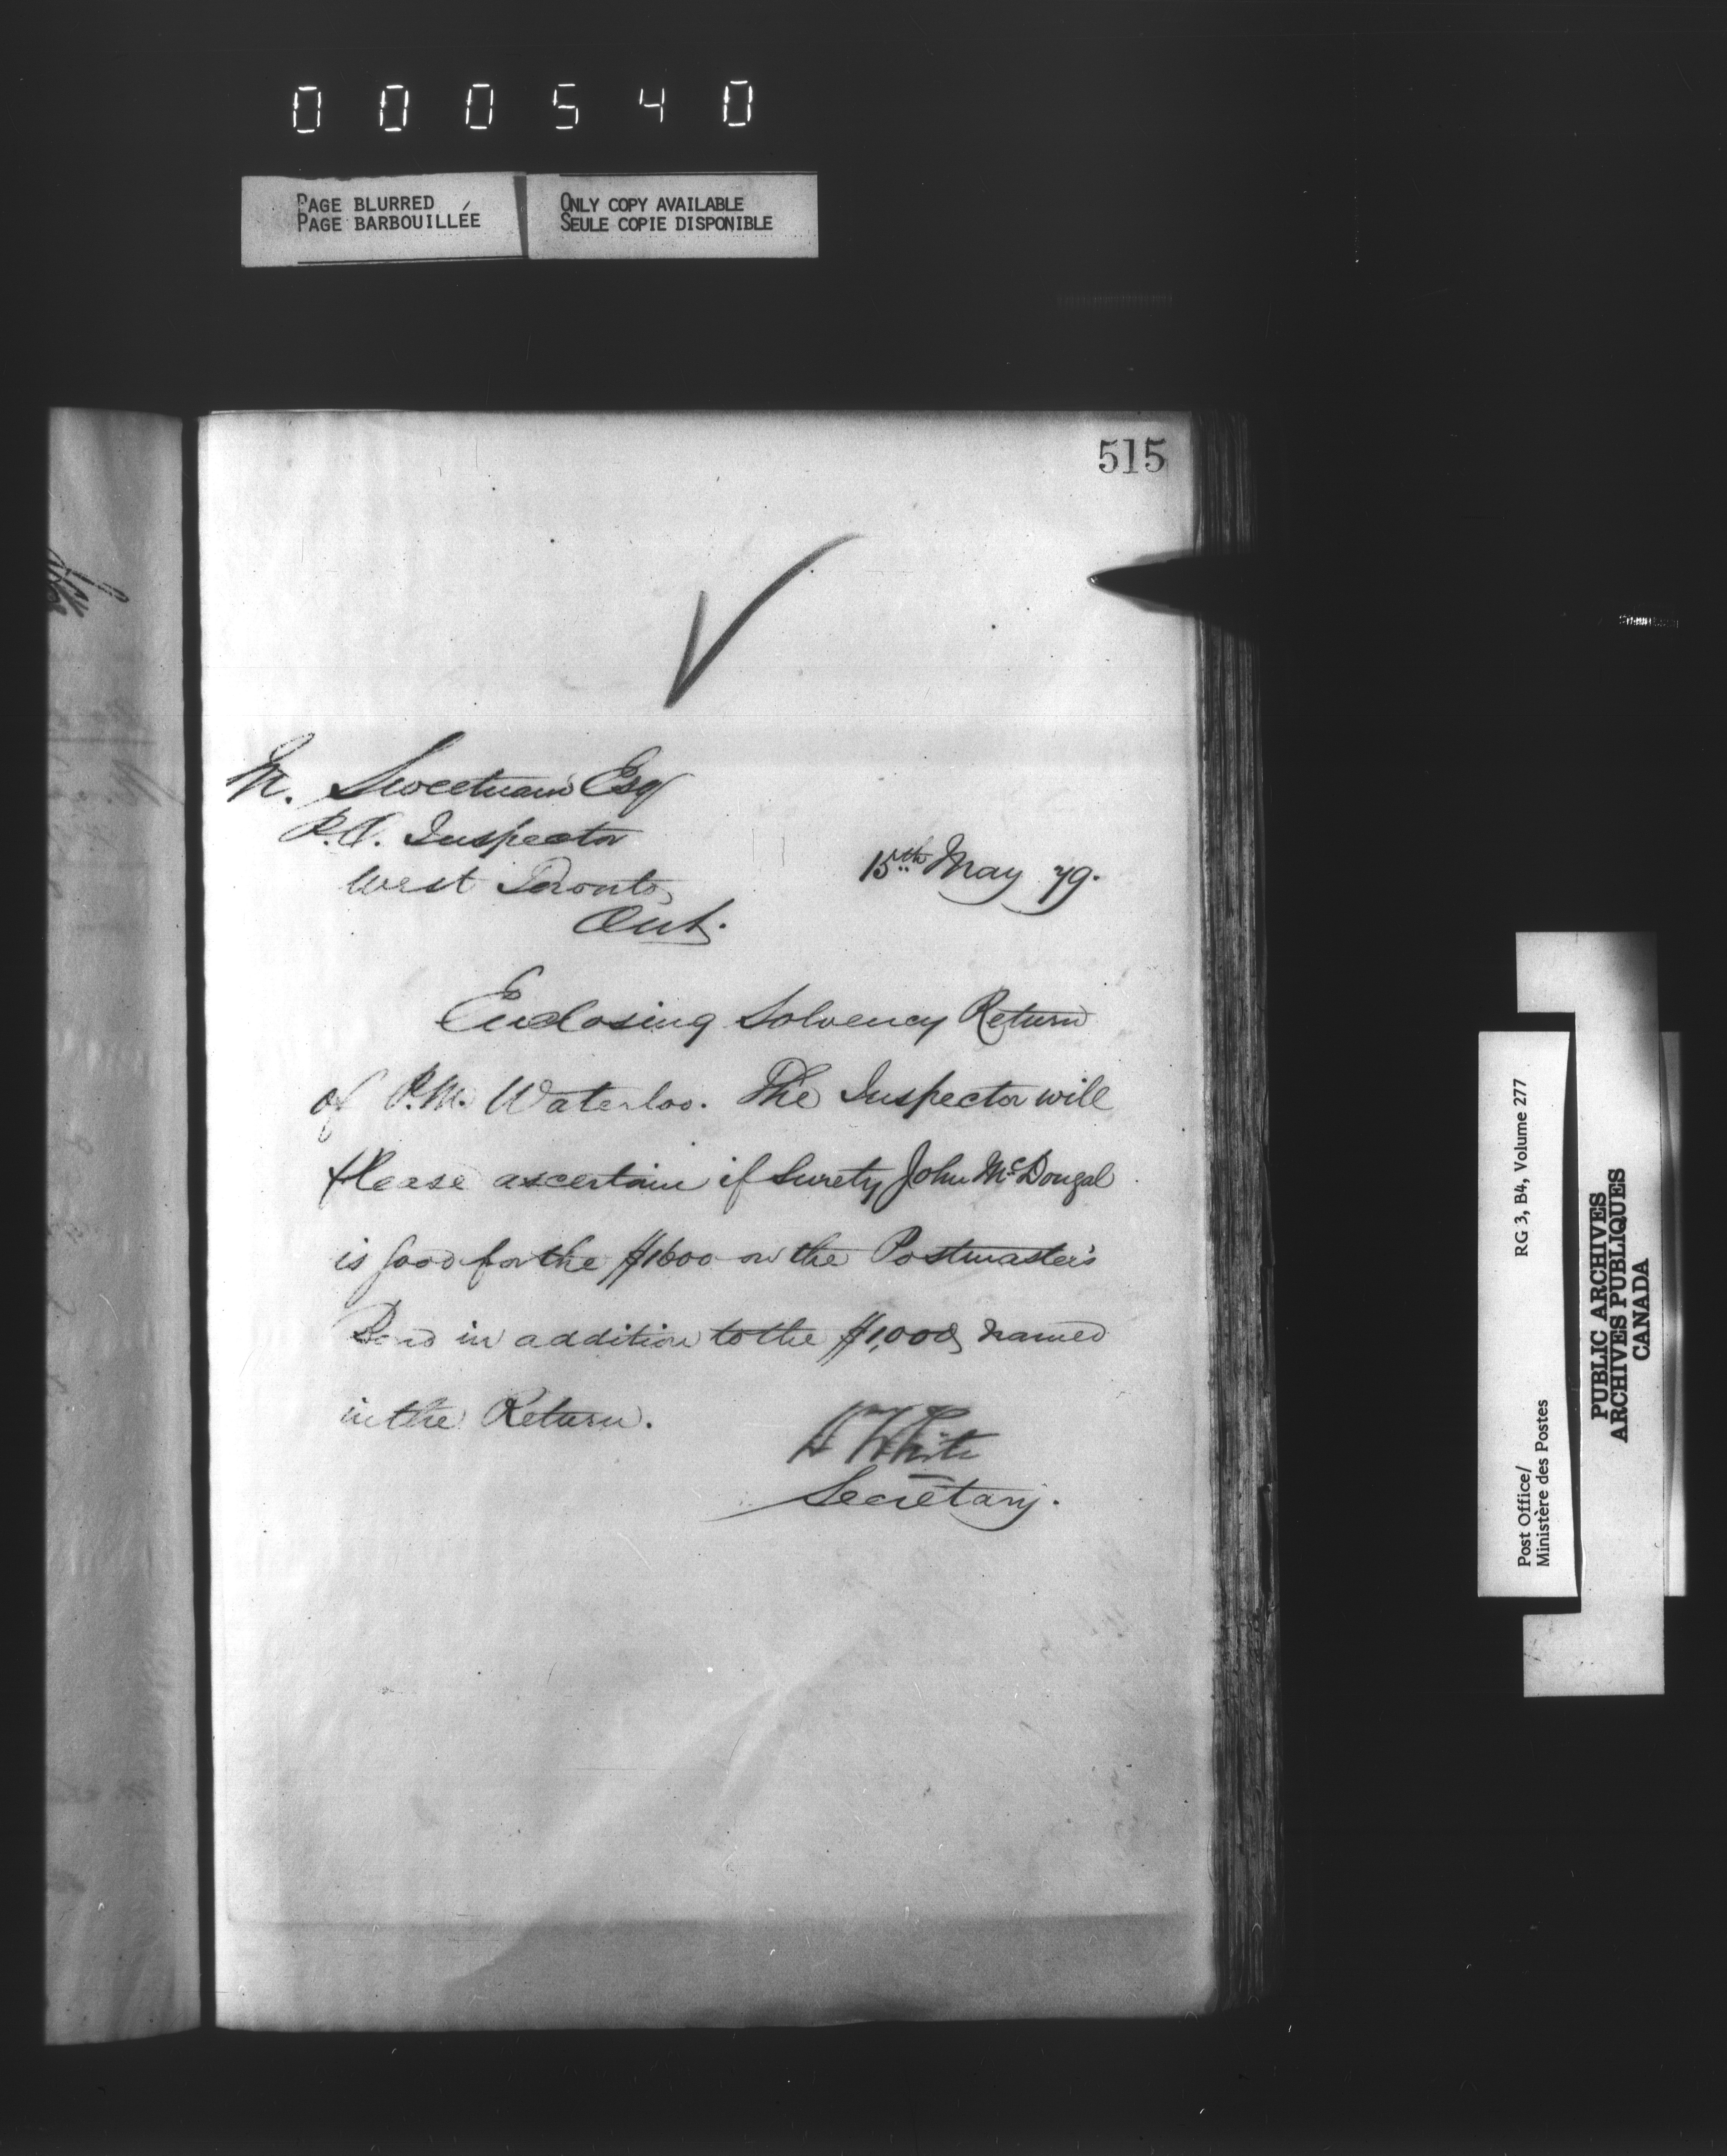 000540
PAGE BLURRED
PAGE BARBOUILLÉE
ONLY COPY AVAILABLE
SEULE COPIE DISPONIBLE
515
M. Sweetnam Esq
P.O. Inspector
West Toronto
Ont.
15th May 79.
Enclosing Solvency Return
of P.M. Waterloo. The Inspector will
please ascertain if Surety, John McDougal
is good for the $1600 on the Postmaster's
Bond in addition to the $1,000, named
in the Return.
White
Secretary.
Post Office/
Ministère des Postes
RG 3, B4, Volume 277
PUBLIC ARCHIVES
ARCHIVES PUBLIQUES
CANADA